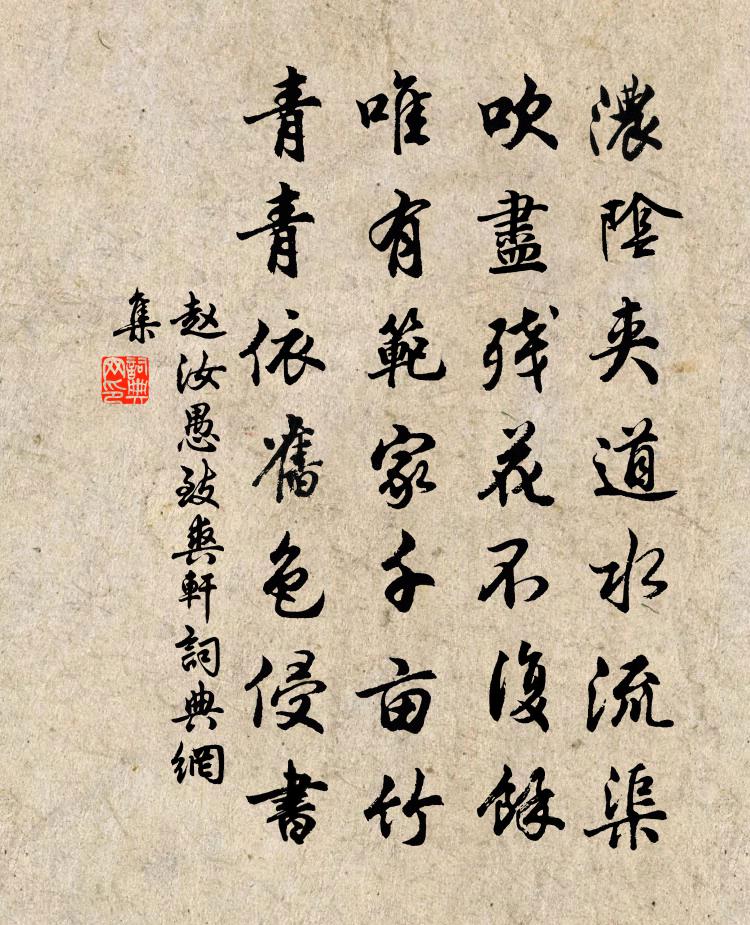 濃陰夾道水流渠
吹盡殘花不復餘
唯有範家千亩竹
青青依舊色侵書
赵汝愚致爽軒詞典網
集
詞典
网印